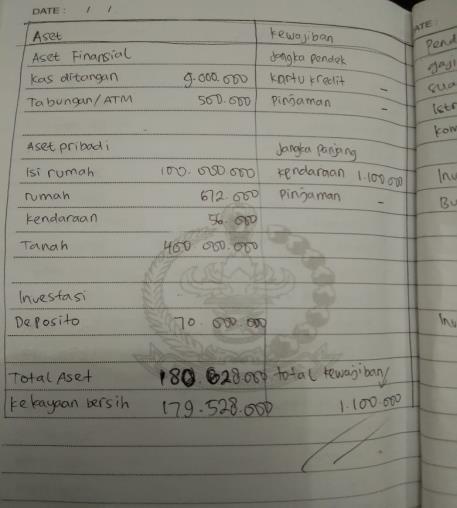 DATE: / /
Aset Kewajiban
Aset Finansial Jangka Pendek
Kas ditangan 9.000.000 Kartu Kredit -
Tabungan/ATM 500.000 Pinjaman -
Aset pribadi Jangka Panjang
Isi rumah 100.000.000 Kendaraan 1.100.000
rumah 672.000 Pinjaman -
Kendaraan 56.000
Tanah 400.000.000
Investasi
Deposito 70.000.000
Total Aset 180.628.000 total kewajiban
Kekayaan bersih 179.528.000 1.100.000
ATE:
Pend
gaji
sua
Istr
kom
Inv
Bu
Inv